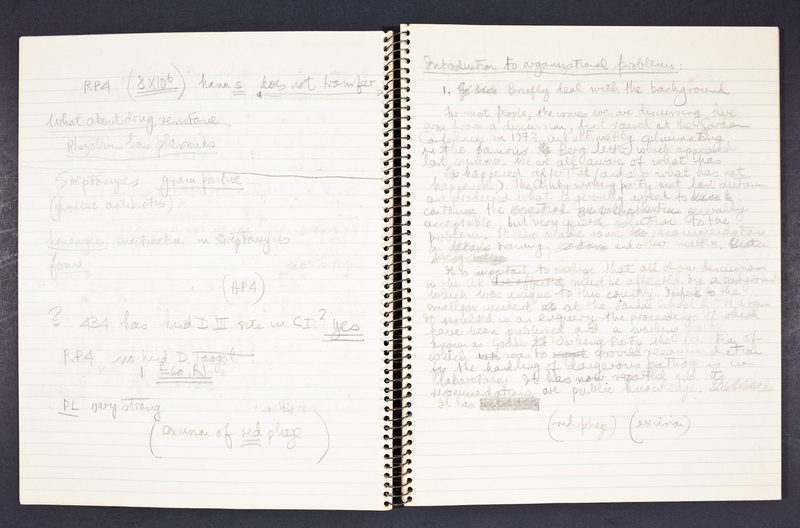 RP4 (8x10⁶) kana s does not transfer
What about drug resistance
Rhizobium has plasmids
Streptomyces gram positive
(produce antibiotics)
in Streptomyces
found
(RP4)
? 434 has hind D III site in CI? yes
RP4 no hind D target
1 Eco RI
PL very strong
(excision of red phage)
Introduction to organizational problems:
1. Briefly deal with the background
To most people, the issues we are discussing here
arose from a discussion first raised at the Gordon
Conference in 1973 and ultimately culminating
in the famous Berg letter which appeared
last summer. We are all aware of what has
happened after that (and also what has not
happened). The Ashby working party met last autumn
and produced what is generally agreed to
generally
acceptable, but very general solution to the
problem. It has made some recommendations
on training, and other matters.
It is important to realize that all of our discussions
in the UK must be affected by a background
which was unique to this country. I refer to the
smallpox
It resulted in a enquiry the proceedings of which
have been published and a working party
known as Godber Working Party the
which was to provide
for the handling of dangerous pathogens in
laboratories. It has now reported and its
recommendations are public knowledge.
It has
(red phage) (excision)